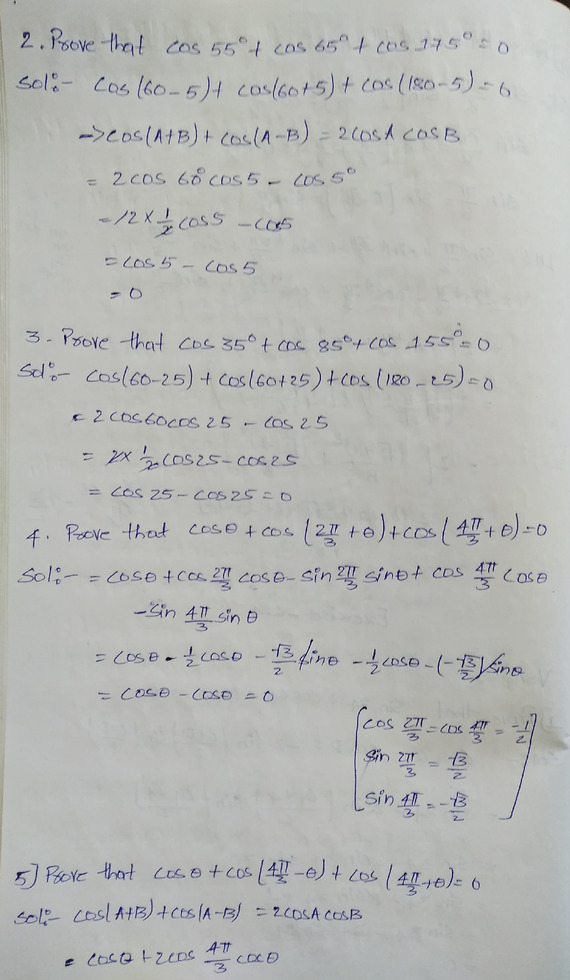 2. Prove that cos 55° + cos 65° + cos 175° = 0
Sol:- cos (60 - 5) + cos(60+5) + cos (180-5) = 0
→ cos(A+B) + cos(A-B) = 2cosA cosB
= 2 cos 60° cos 5 - cos 5°
= 2 × 1/2 cos 5 - cos 5
= cos 5 - cos 5
= 0
3 - Prove that cos 35° + cos 85° + cos 155° = 0
Sol:- cos(60-25) + cos(60+25) + cos (180 - 25) = 0
= 2 cos60 cos 25 - cos 25
= 2 × 1/2 cos25 - cos25
= cos 25 - cos25 = 0
4. Prove that cosθ + cos (2π/3 + θ) + cos (4π/3 + θ) = 0
Sol:- = cosθ + cos 2π/3 cosθ - sin 2π/3 sinθ + cos 4π/3 cosθ
- sin 4π/3 sin θ
= cosθ - 1/2 cosθ - √3/2 sinθ - 1/2 cosθ - (-√3/2) sinθ
= cosθ - cosθ = 0
[cos 2π/3 = cos 4π/3 = -1/2
sin 2π/3 = √3/2
sin 4π/3 = -√3/2]
5] Prove that cosθ + cos (4π/3 - θ) + cos (4π/3 + θ) = 0
sol:- cos(A+B) + cos(A-B) = 2cosA cosB
= cosθ + 2cos 4π/3 cosθ